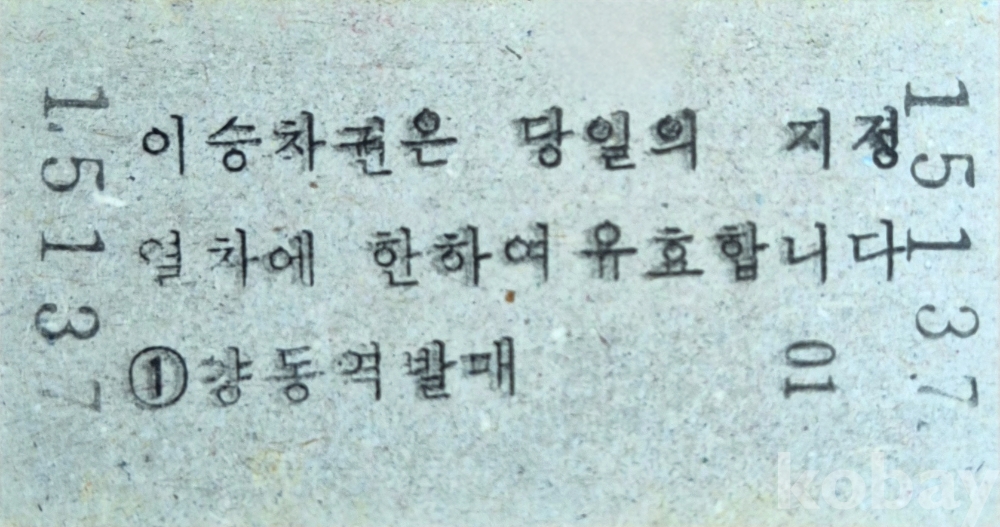 이 승차권은 당일의 지정
열차에 한하여 유효합니다
①양동역발매
01
1.5137
1.5137
kobay